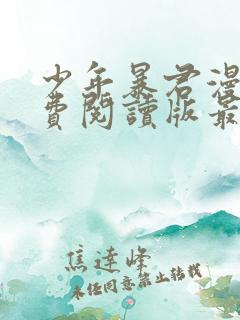 少年暴君漫
费阅读版最
焦达峰
未经同意禁止转载